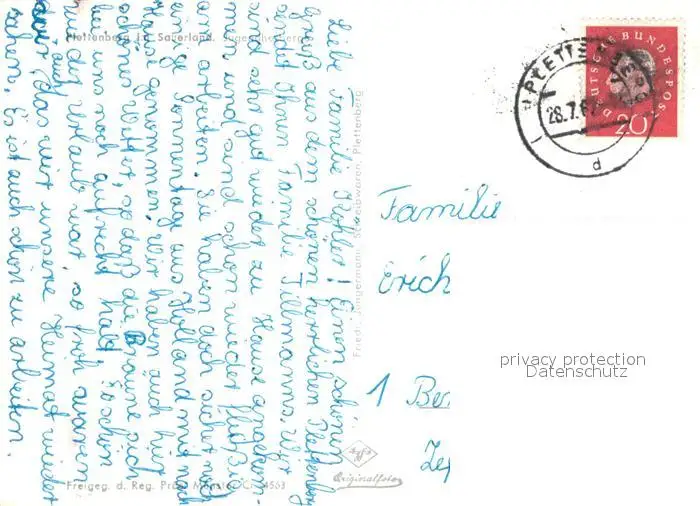 Liebe Familie Köhler! Einen schönen
Gruß aus dem schönen herrlichen Plettenberg
sendet Ihnen Familie Tillmanns. Wir
sind sehr gut wieder zu Hause angekom-
men und sind schon wieder fleißig
am arbeiten. Sie haben doch sicher noch
einige Sonnentage aus Holland mit nach
Hause genommen. Wir haben auch hier
schönes Wetter, so daß die Bräune sich
bei uns noch aufrecht hält. So schön
wie der Urlaub war so froh waren
wir auch, das wir unsere Heimat wieder
sahen. Es ist auch schön zu arbeiten.
Plettenberg i. Sauerland. Jugendherberge
Friedr. Jüngermann, Schreibwaren, Plettenberg
Freigeg. d. Reg. Präs. Münster Cr. 4563
Agfa
Originalfoto
PLETTENBERG
28.7.6
d
DEUTSCHE BUNDESPOST
20
Familie
Erich
1 Ber
Ze
privacy protection
Datenschutz